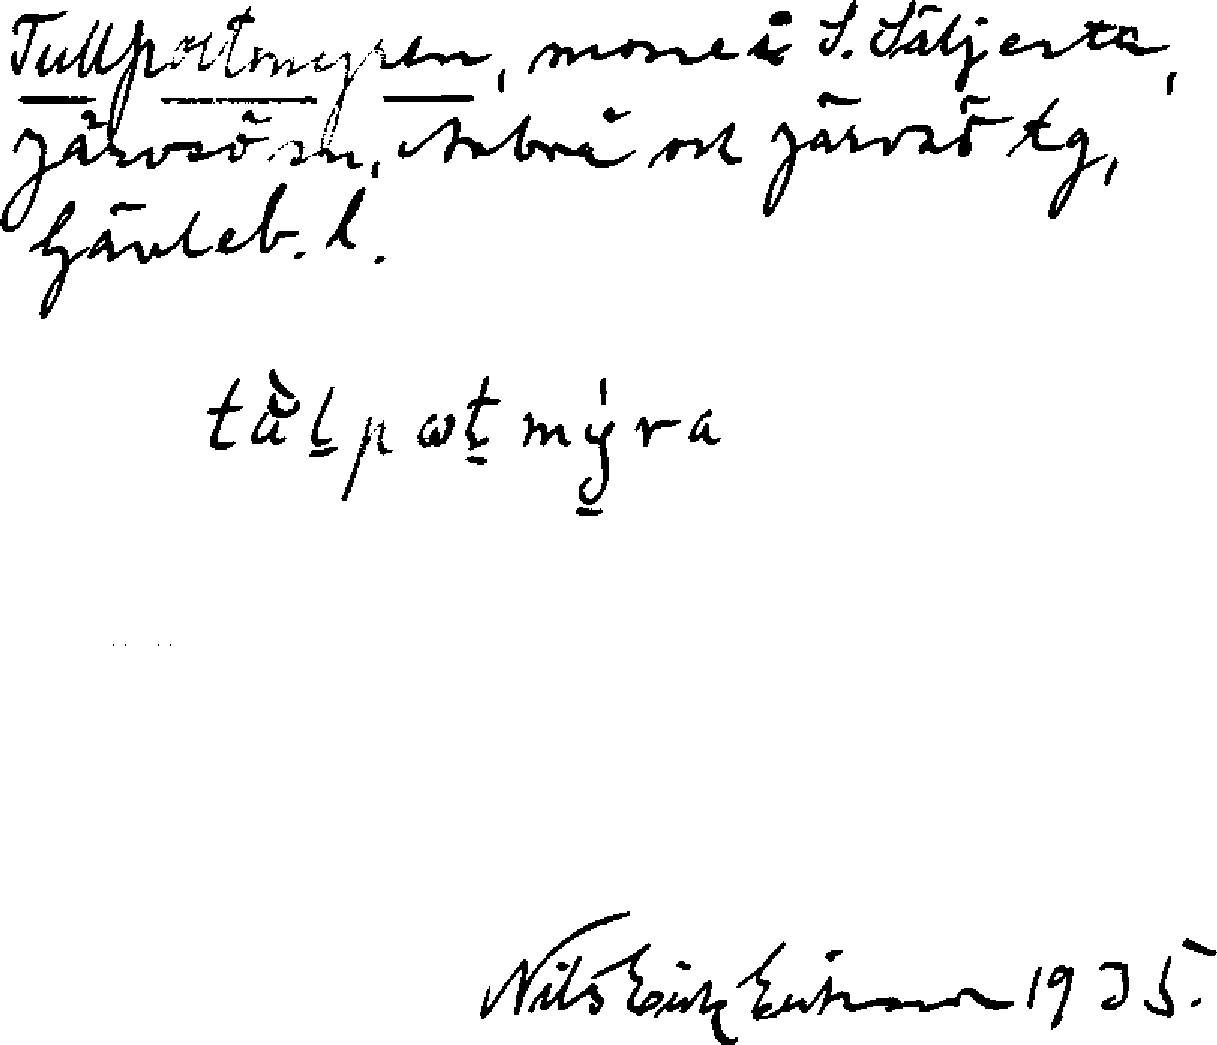 Tullportmyren, mosse i S. Säljesta,
Järvsö sn, Arbrå och Järvsö tg,
Gävleb. l.
tålpωtmýra
Nils Erik Eriksson 1935.